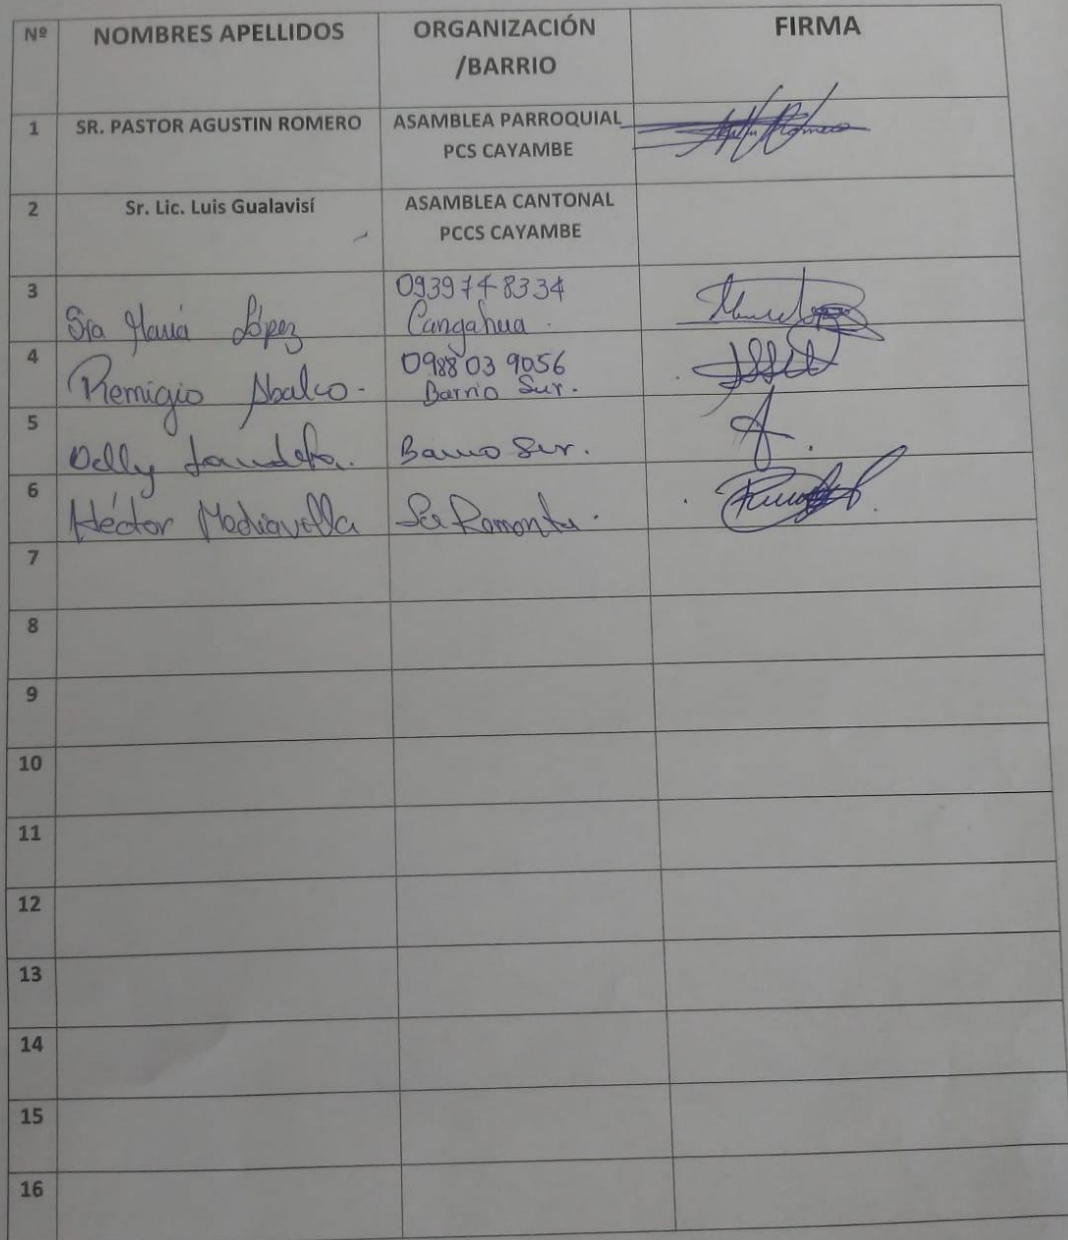 Nº NOMBRES APELLIDOS ORGANIZACIÓN /BARRIO FIRMA
1 SR. PASTOR AGUSTIN ROMERO ASAMBLEA PARROQUIAL
PCS CAYAMBE
2 Sr. Lic. Luis Gualavisí ASAMBLEA CANTONAL
PCCS CAYAMBE
3 Sra María López 0939748334
Cangahua.
4 Remigio Abalco. 0988039056
Barrio Sur.
5 Barrio Sur.
6 Héctor Mediavilla
7
8
9
10
11
12
13
14
15
16